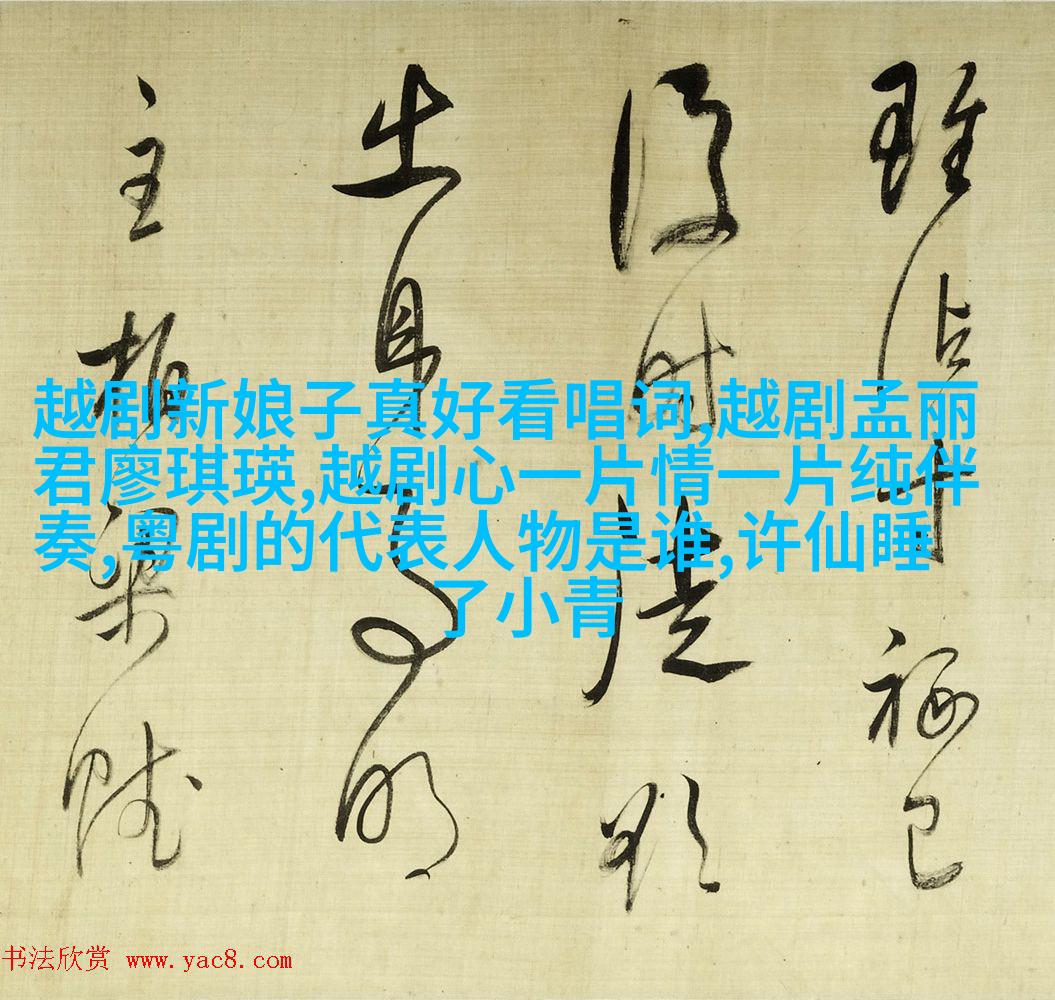 雖沾
出身事明
主柏梁賦
越剧新娘子真好看唱词,越剧孟丽
君廖琪瑛,越剧心一片情一片纯伴
奏,粤剧的代表人物是谁,许仙睡
了小青
书法欣赏 www.yac8.com